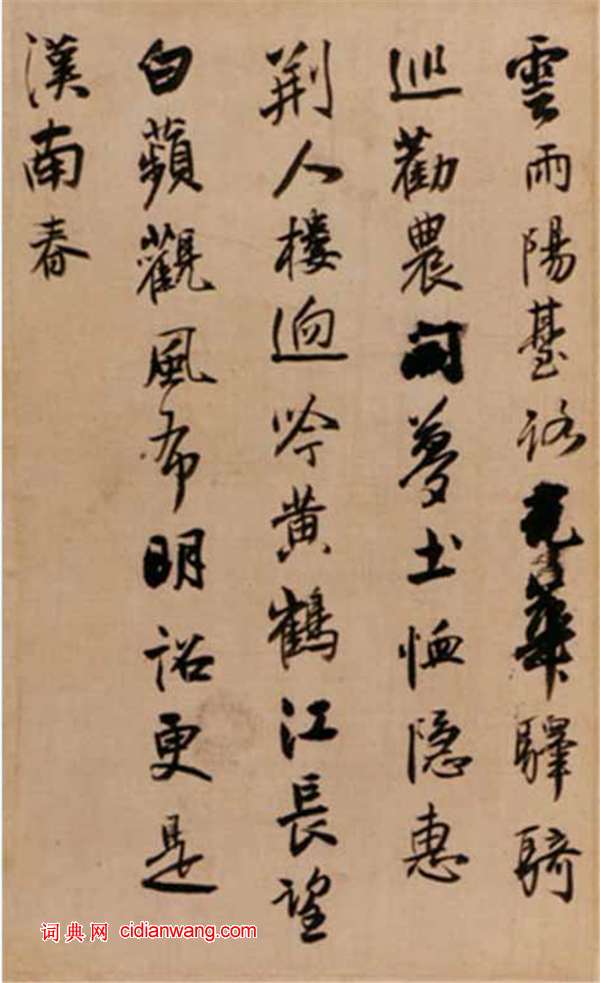 雲雨陽臺路光華驛騎
巡勸農開夢土恤隱惠
荆人樓迥吟黄鶴江長望
白蘋觀風布明詔更是
漢南春
词典网 cidianwang.com